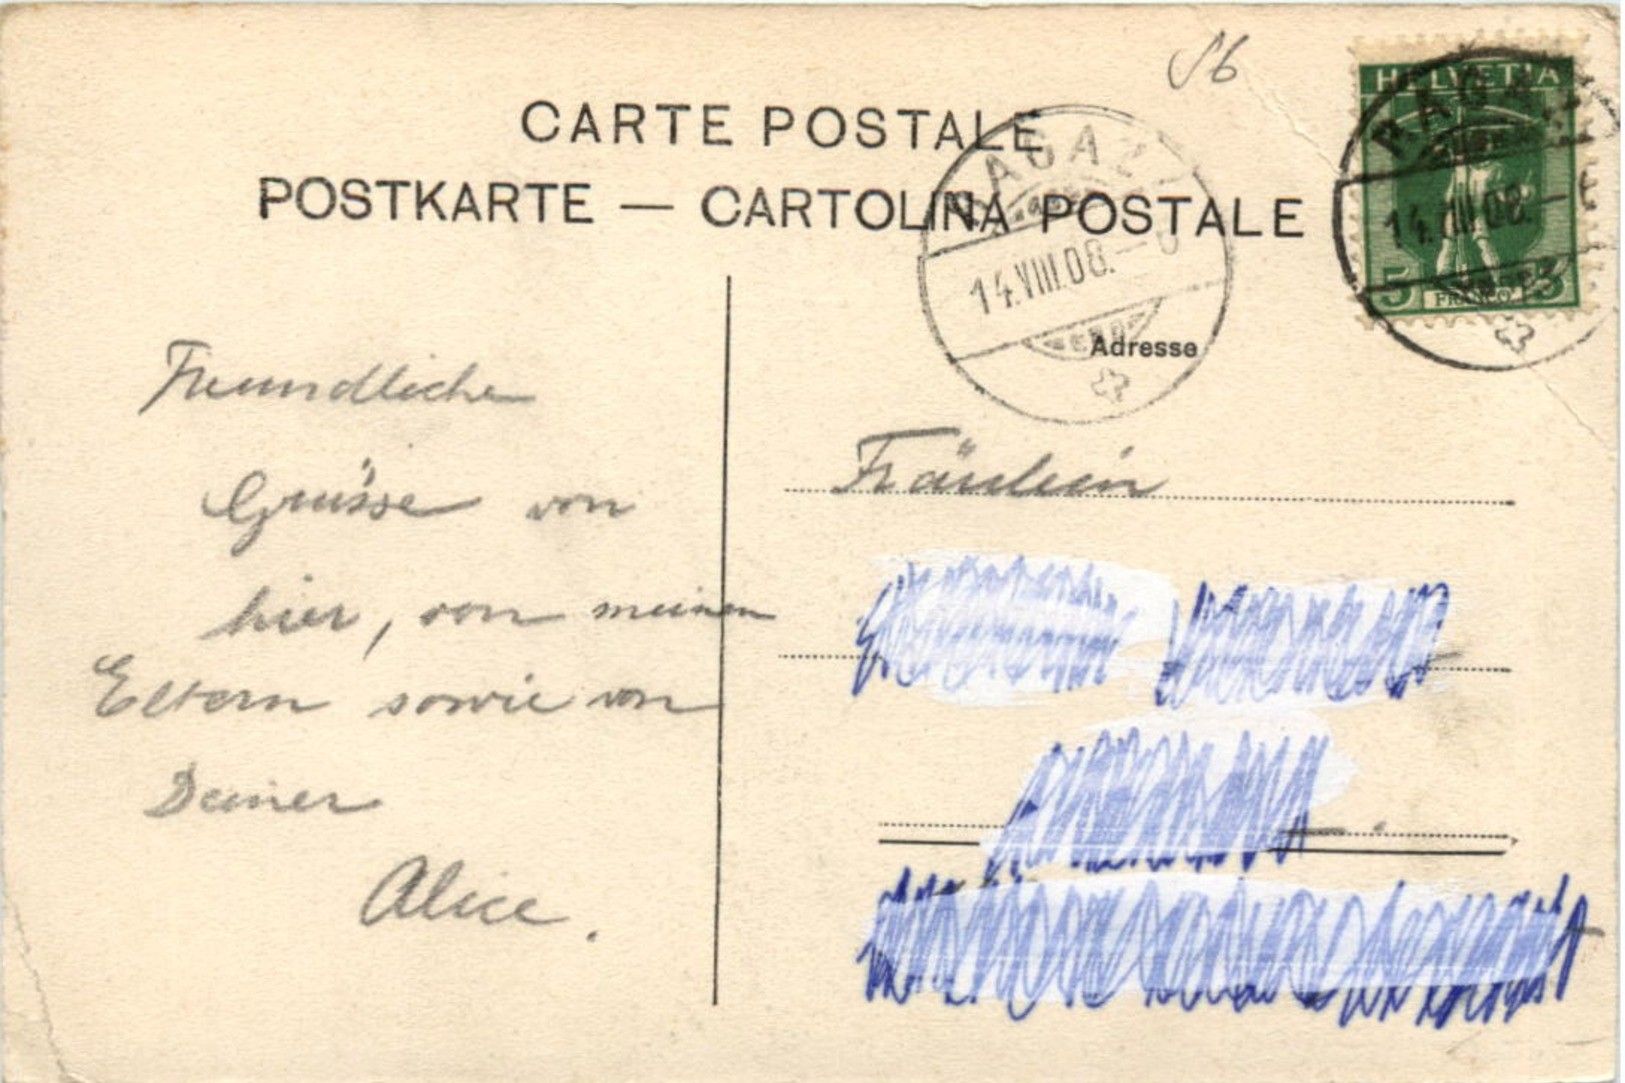 56
CARTE POSTALE
POSTKARTE — CARTOLINA POSTALE
HELVETIA
5
FRANCO
RAGAZ
14.VIII.08.
RAGAZ
14.VIII.08.–
Adresse
Freundliche
Grüsse von
hier, von meinen
Eltern sowie von
Deiner
Alice.
Fräulein